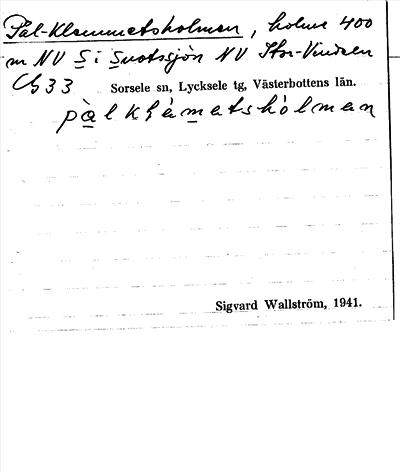 Pål-Klemmetsholmen, holme 400
m NV S i Snotssjön NV Stor-Vindeln
Ch 33 Sorsele sn, Lycksele tg, Västerbottens län.
pàlklæ̀matshólman
Sigvard Wallström, 1941.